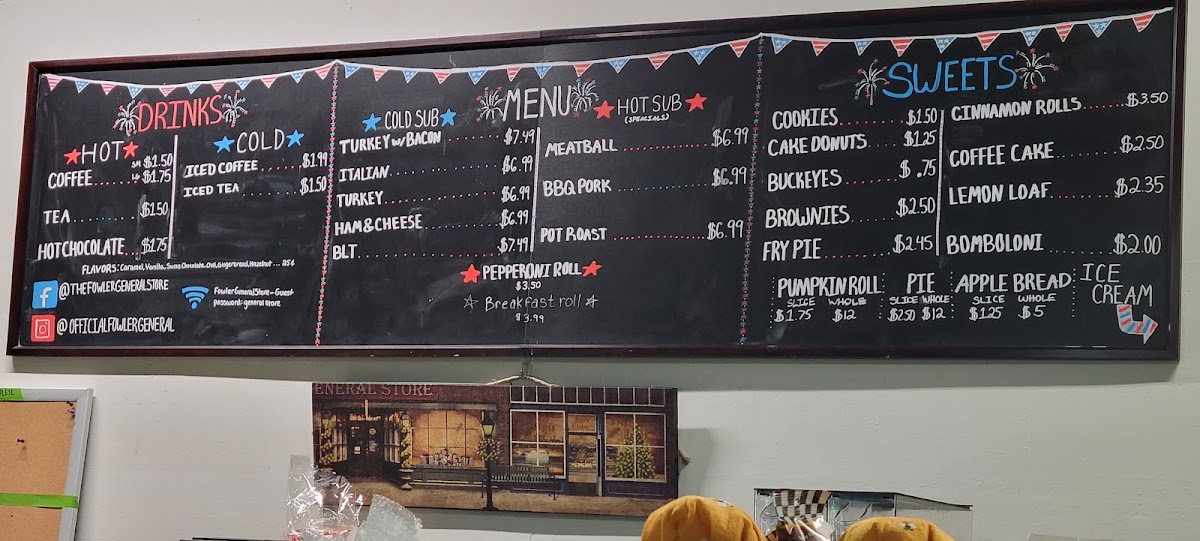 DRINKS
HOT
COFFEE SM $1.50
LG $1.75
TEA $1.50
HOT CHOCOLATE $1.75
COLD
ICED COFFEE $1.99
ICED TEA $1.50
FLAVORS: Caramel, Vanilla, Swiss Chocolate, Gingerbread, Hazelnut ... 25¢
@THEFOWLERGENERALSTORE
@ OFFICIALFOWLERGENERAL
FowlerGeneralStore-Guest
password: general store
MENU
COLD SUB
TURKEY w/ BACON $7.49
ITALIAN $6.99
TURKEY $6.99
HAM & CHEESE $6.99
BLT $7.49
HOT SUB
(SPECIALS)
MEATBALL $6.99
BBQ PORK $6.99
POT ROAST $6.99
PEPPERONI ROLL
$3.50
Breakfast roll
$3.99
SWEETS
COOKIES $1.50
CAKE DONUTS $1.25
BUCKEYES $.75
BROWNIES $2.50
FRY PIE $2.45
CINNAMON ROLLS $3.50
COFFEE CAKE $2.50
LEMON LOAF $2.35
BOMBOLONI $2.00
PUMPKIN ROLL
SLICE WHOLE
$1.75 $12
PIE
SLICE WHOLE
$2.50 $12
APPLE BREAD
SLICE WHOLE
$1.25 $5
ICE
CREAM
ENERAL STORE